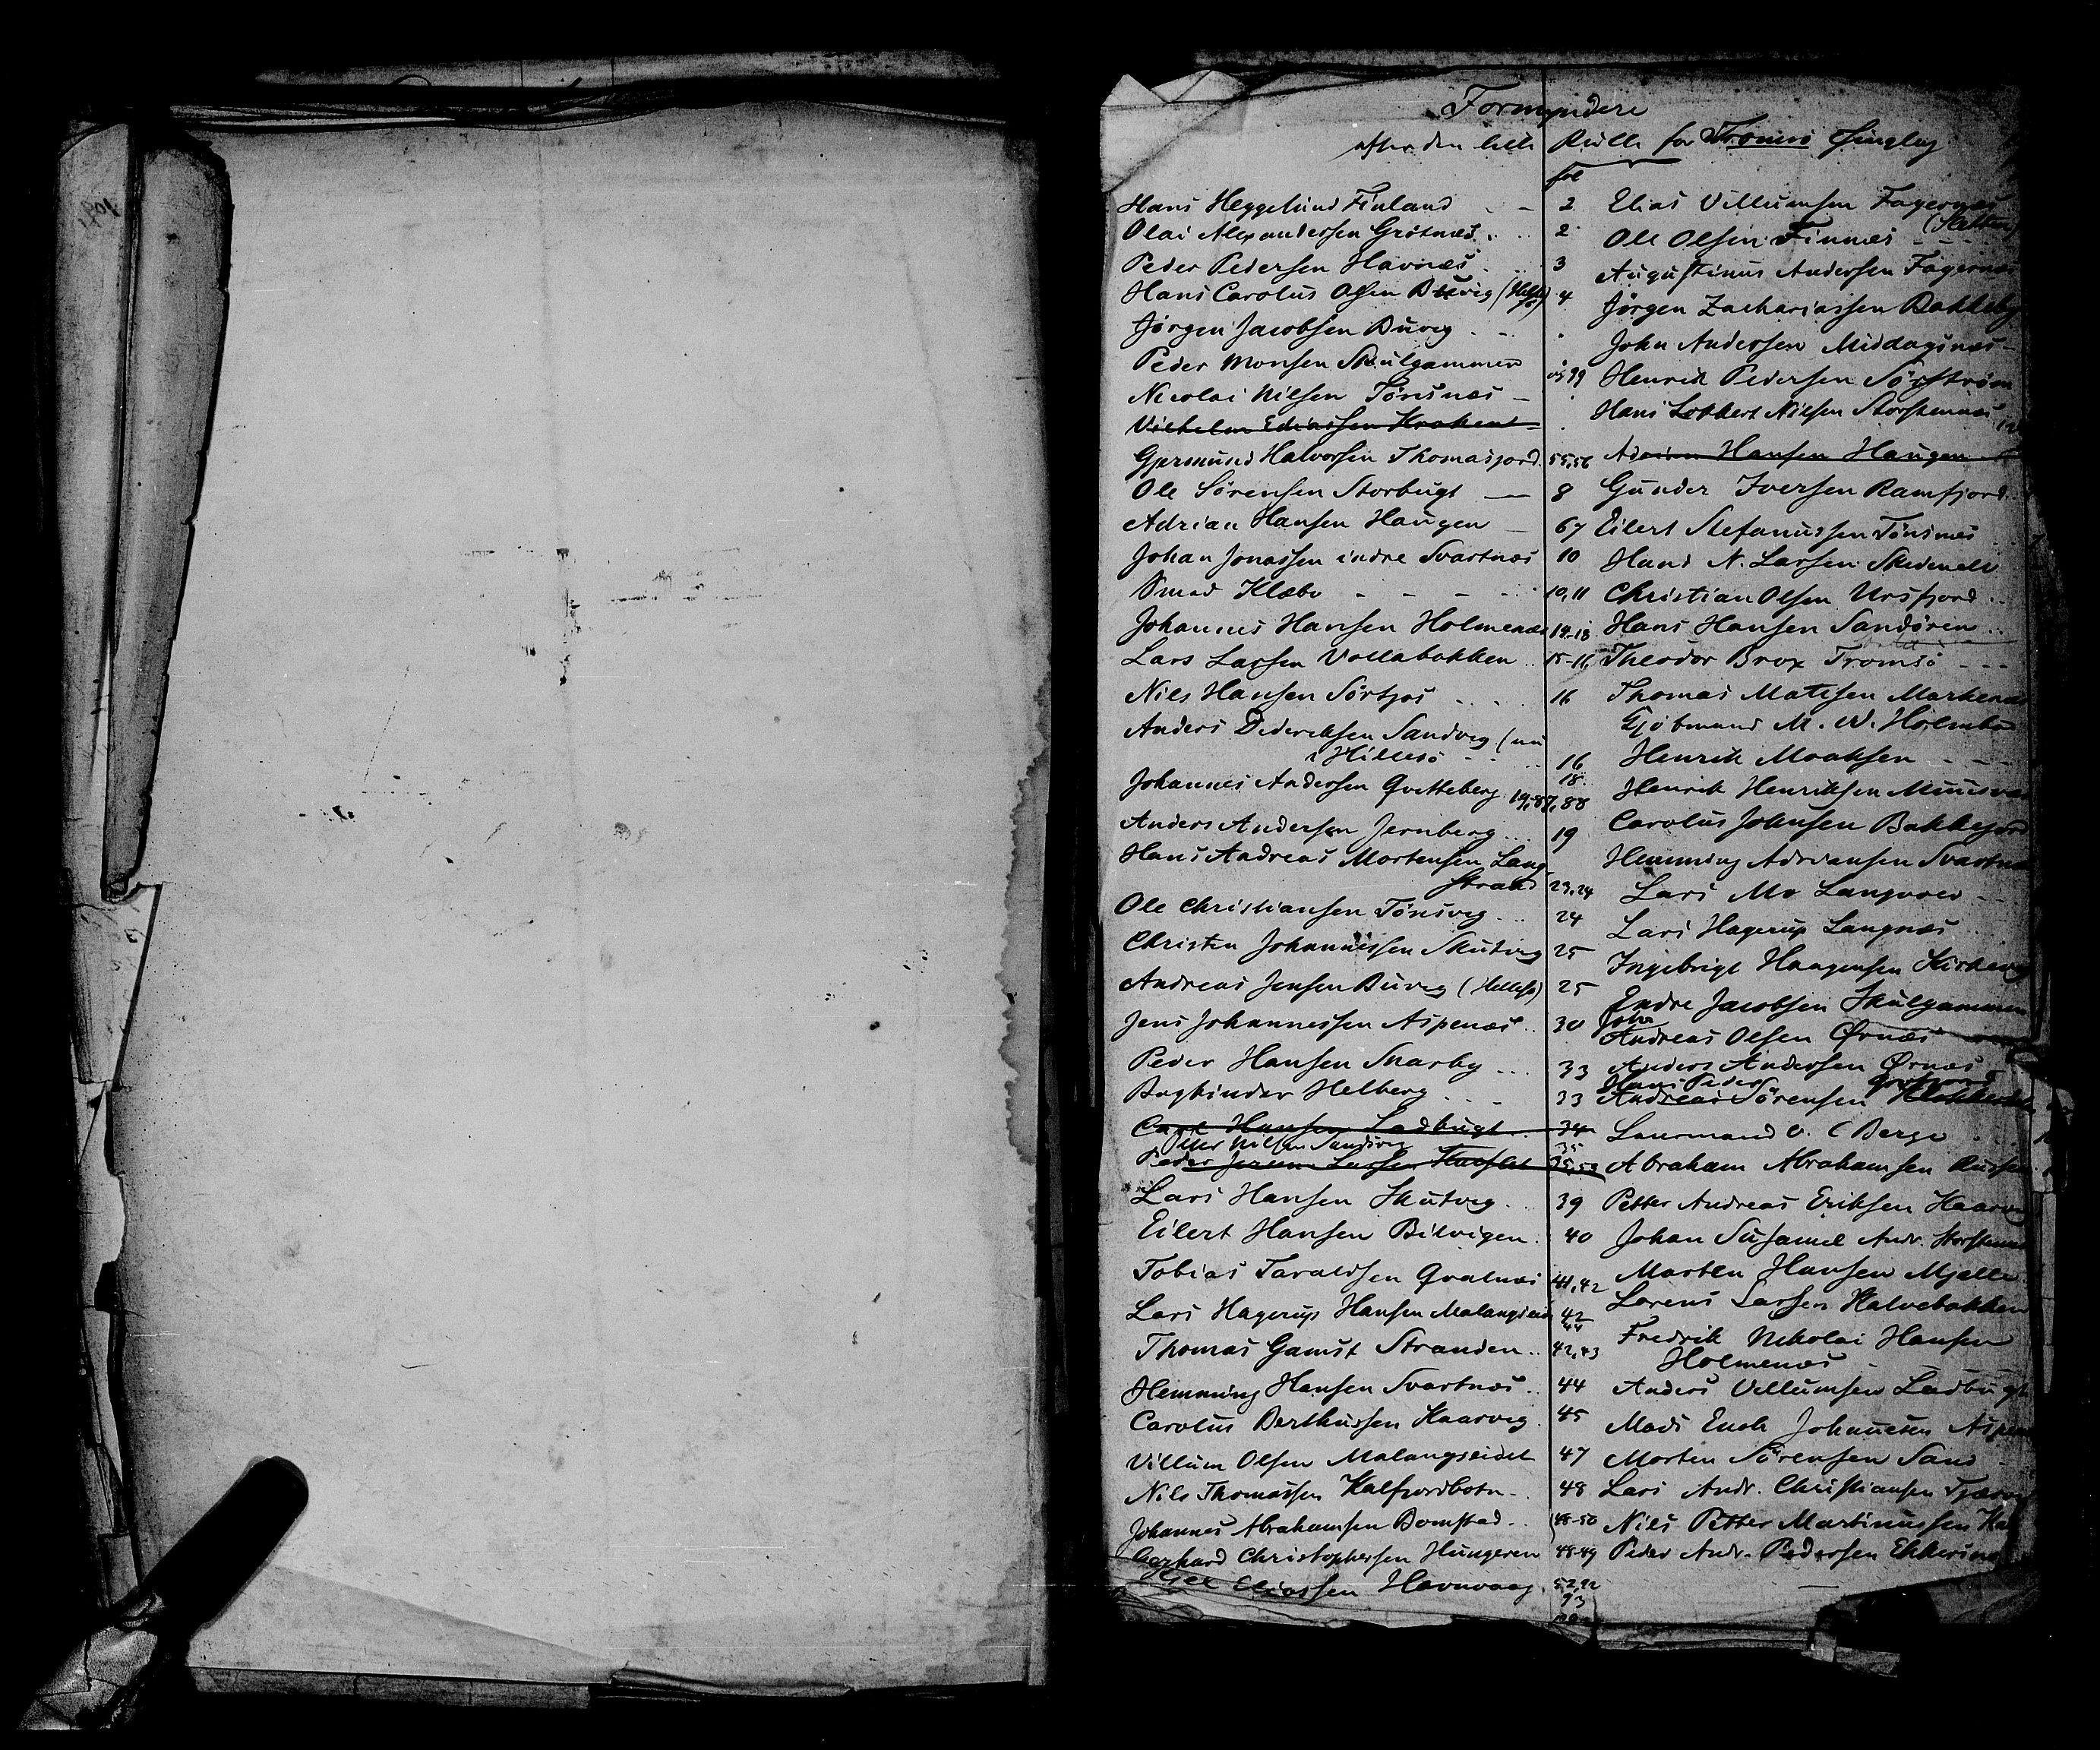 Formyndere
efter den lille Rulle for Tromsø Thinglag
fol
Hans Heggelund Finland - - 2
Olai Alexandersen Grøtnæs 2
Peder Pedersen Havnæs 3
Hans Carolus Olsen Buvig (Hillesø) 4
Jørgen Jacobsen Buvig
Peder Monsen Skulgammen
Nicolai Nilsen Tønsnæs - 99
Vilhelm Eliassen Krokent
Gjermund Halvorsen Thomasjord 55,56
Ole Sørensen Storbugt - 8
Adrian Hansen Haugen - 67
Johan Jonassen indre Svartnæs 10
Smed Klæbo - - - - 10,11
Johannes Hansen Holmenæs 14-18
Lars Larsen Vollabakken 15-16
Nils Hansen Sørtjos 16
Anders Dideriksen Sandvig (nu
i Hillesø - - 16
18
Johannes Andersen Qvitteberg 19,87,88
Anders Andersen Jernberg 19
Hans Andreas Mortensen Lang
strand 23,24
Ole Christiansen Tønsvig 24
Christen Johannessen Skutvig 25
Andreas Jensen Buvig (Hillesø) 25
Jens Johannessen Aspenæs 30
Peder Hansen Snarby 33
Bogbinder Helberg 33
Carl Hansen Ladbugt 34
Peter Nilsen Sandsvig 35
Peder Larsen
Lars Hansen Skutvig 39
Eilert Hansen Bilvigen 40
Tobias Taraldsen Qvalnæs 41,42
Lars Hagerup Hansen Malangseid 42
44
Thomas Gamst Stranden 42,43
Hemming Hansen Svartnæs 44
Carolus Berthussen Kaarvig 45
Villum Olsen Malangseidet 47
Nils Thomassen Kalfjordbotn 48
Johannes Abrahamsen Bomstad 48-50
Gerhard Christophersen Hungeren 48-49
Eliassen Havnvaag 52,92
93
Elias Villumsen Fagernæs
Ole Olsen Finnæs
Augustinus Andersen Fagernæs
Jørgen Zachariassen Bakkeby
John Andersen Middagsnæs
Henrik Pedersen Sørstrøm
Hans Lobbert Nilsen Storsteinnæs
Adrian Hansen Haugen
Gunder Iversen Ramfjord
Eilert Stefanussen Tønsnæs
Hans N. Larsen Skedenelv
Christian Olsen Ursfjord
Hans Hansen Sandøren
Theodor Brox Tromsø - - -
Thomas Matisen Markenæs
Kjøbmand M. W. Holmboe
Henrik Moaksen - - -
Henrik Henriksen Muusvær
Carolus Johnsen Bakkejord
Hemming Adriansen Svartnæs
Lars Mo Langvold
Lars Hagerup Langnæs
Ingebrigt Haagensen Kirkevig
Endre Jacobsen Skulgammen
John
Andreas Olsen Ørnæs
Anders Andersen Ørnæs
Hans Peder
Andreas Sørensen
Lensmand O. C Berge
Abraham Abrahamsen
Petter Andreas Eriksen Kaarvig
Johan Susamel Andr. Storsteinnæs
Morten Hansen Mjelle
Lorens Larsen Halvebakken
Fredrik Nikolai Hansen
Holmenæs
Anders Villumsen Ladbugt
Mads Enok Johnsen Aspenæs
Morten Sørensen Sand
Lars Andr. Christiansen
Nils Petter Martinussen
Peder Andr. Pedersen